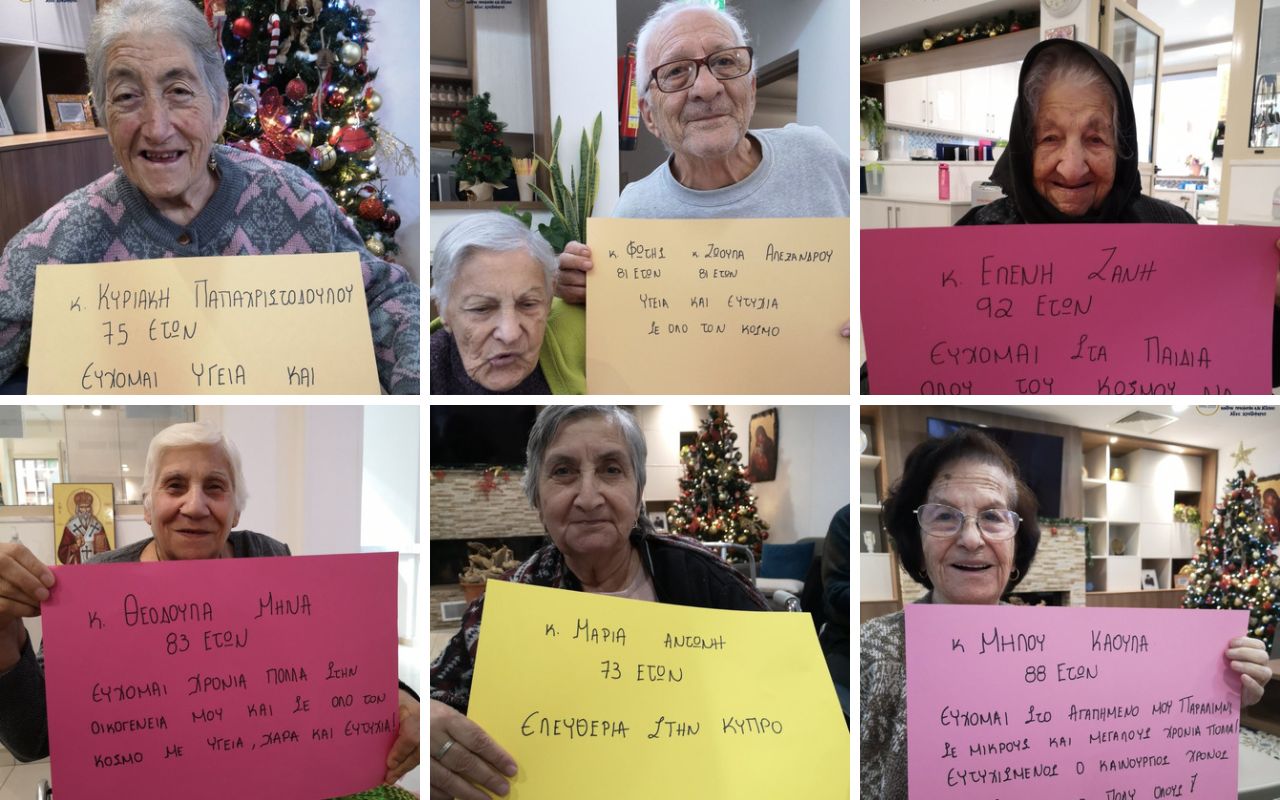 κ. ΚΥΡΙΑΚΗ ΠΑΠΑΧΡΙΣΤΟΔΟΥΛΟΥ
75 ΕΤΩΝ
ΕΥΧΟΜΑΙ ΥΓΕΙΑ ΚΑΙ
κ. ΦΩΤΗΣ κ. ΖΩΟΥΛΑ ΑΛΕΞΑΝΔΡΟΥ
81 ΕΤΩΝ 81 ΕΤΩΝ
ΥΓΕΙΑ ΚΑΙ ΕΥΤΥΧΙΑ
ΣΕ ΟΛΟ ΤΟΝ ΚΟΣΜΟ
κ. ΕΛΕΝΗ ΖΑΝΗ
92 ΕΤΩΝ
ΕΥΧΟΜΑΙ ΣΤΑ ΠΑΙΔΙΑ
ΟΛΟΥ ΤΟΥ ΚΟΣΜΟΥ ΝΑ
κ. ΘΕΟΔΟΥΛΑ ΜΗΝΑ
83 ΕΤΩΝ
ΕΥΧΟΜΑΙ ΧΡΟΝΙΑ ΠΟΛΛΑ ΣΤΗΝ
ΟΙΚΟΓΕΝΕΙΑ ΜΟΥ ΚΑΙ ΣΕ ΟΛΟ ΤΟΝ
ΚΟΣΜΟ ΜΕ ΥΓΕΙΑ, ΧΑΡΑ ΚΑΙ ΕΥΤΥΧΙΑ!
κ. ΜΑΡΙΑ ΑΝΤΩΝΗ
73 ΕΤΩΝ
ΕΛΕΥΘΕΡΙΑ ΣΤΗΝ ΚΥΠΡΟ
κ ΜΗΛΟΥ ΚΑΟΥΛΑ
88 ΕΤΩΝ
ΕΥΧΟΜΑΙ ΣΤΟ ΑΓΑΠΗΜΕΝΟ ΜΟΥ ΠΑΡΑΛΙΜΝΙ,
ΣΕ ΜΙΚΡΟΥΣ ΚΑΙ ΜΕΓΑΛΟΥΣ ΧΡΟΝΙΑ ΠΟΛΛΑ!
ΕΥΤΥΧΙΣΜΕΝΟΣ Ο ΚΑΙΝΟΥΡΓΙΟΣ ΧΡΟΝΟΣ
ΠΟΛΥ ΟΛΟΥΣ